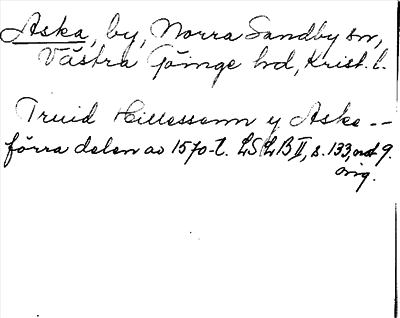 Aska, by, Norra Sandby sn,
Västra Göinge hd, Krist. l.
Truid Hillessønn y Aske --
förra delen av 1570-t. LSLB II, s. 133, not 9.
orig.